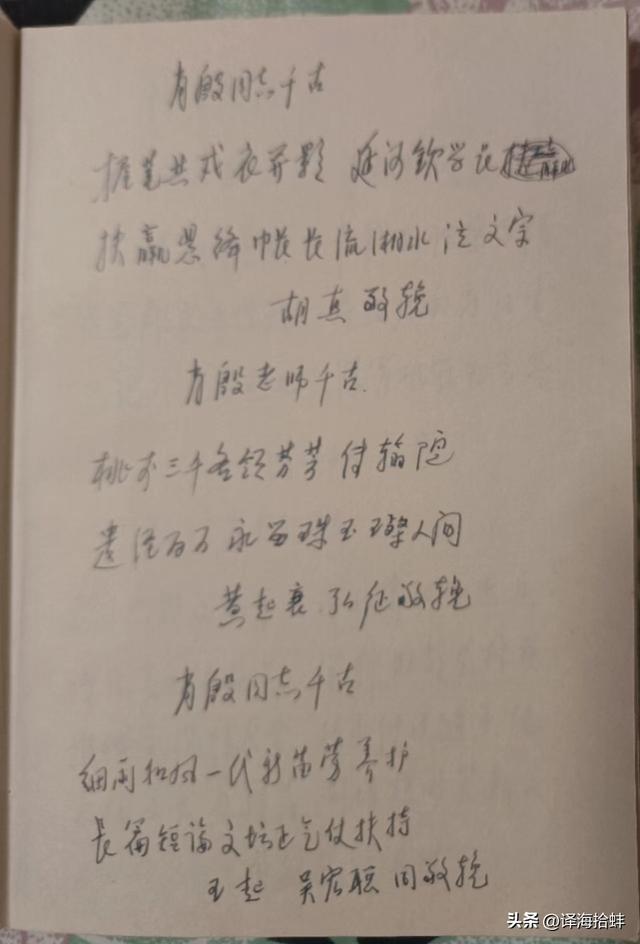 肖殷同志千古
握笔共戎衣异影 延河钦学
扶羸恩绛帐长流湘水泣文宗
胡真敬挽
肖殷老师千古
桃李三千各领芬芳传翰苑
遗泽百万永留珠玉璨人间
黄起衰 弘征敬挽
肖殷同志千古
细雨和风一代新苗劳养护
长篇短论文坛正气仗扶持
王起 吴宏聪同敬挽
头条 @译海拾蚌